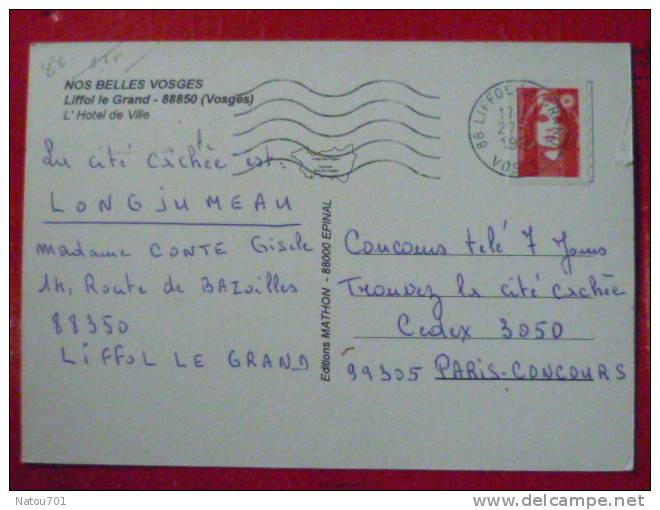 88
NOS BELLES VOSGES
Liffol le Grand - 88850 (Vosges)
L' Hotel de Ville
La cité cachée est:
LONGJUMEAU
madame CONTE Gisele
14, Route de BAZoilles
88350
LIFFOL LE GRAND
Editions MATHON - 88000 EPINAL
88 LIFFOL
17
27
19
VOS
Concours télé 7 Jours
Trouvez la cité cachée
Cedex 3050
99305 PARIS-CONCOURS
Natou701
www.delcampe.net